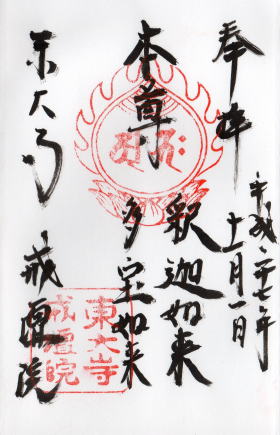 奉拝
平成二十七年
十一月一日
本尊
釈迦如来
多宝如来
東大寺
戒壇院
東大寺
戒壇院